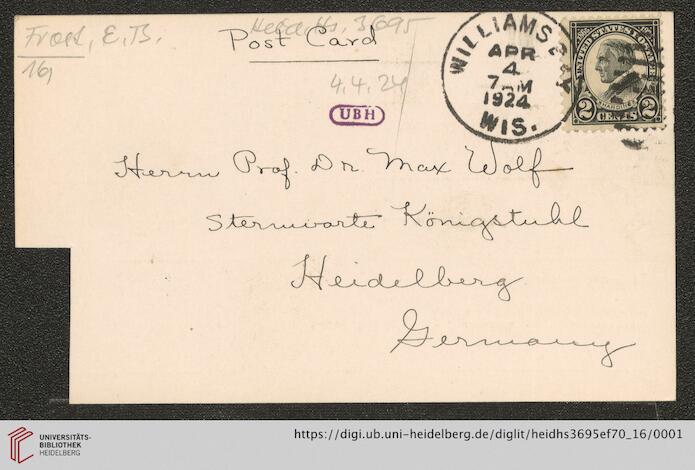 Frost, E.B.
Heid. Hs. 3695
16,
Post Card
4.4.24
UBH
WILLIAMS BAY
APR
4
7 AM
1924
WIS.
UNITED STATES POSTAGE
HARDING
2 CENTS 2
Herrn Prof. Dr. Max Wolf
Sternwarte Königstuhl
Heidelberg
Germany
UNIVERSITÄTS-
BIBLIOTHEK
HEIDELBERG
https://digi.ub.uni-heidelberg.de/diglit/heidhs3695ef70_16/0001